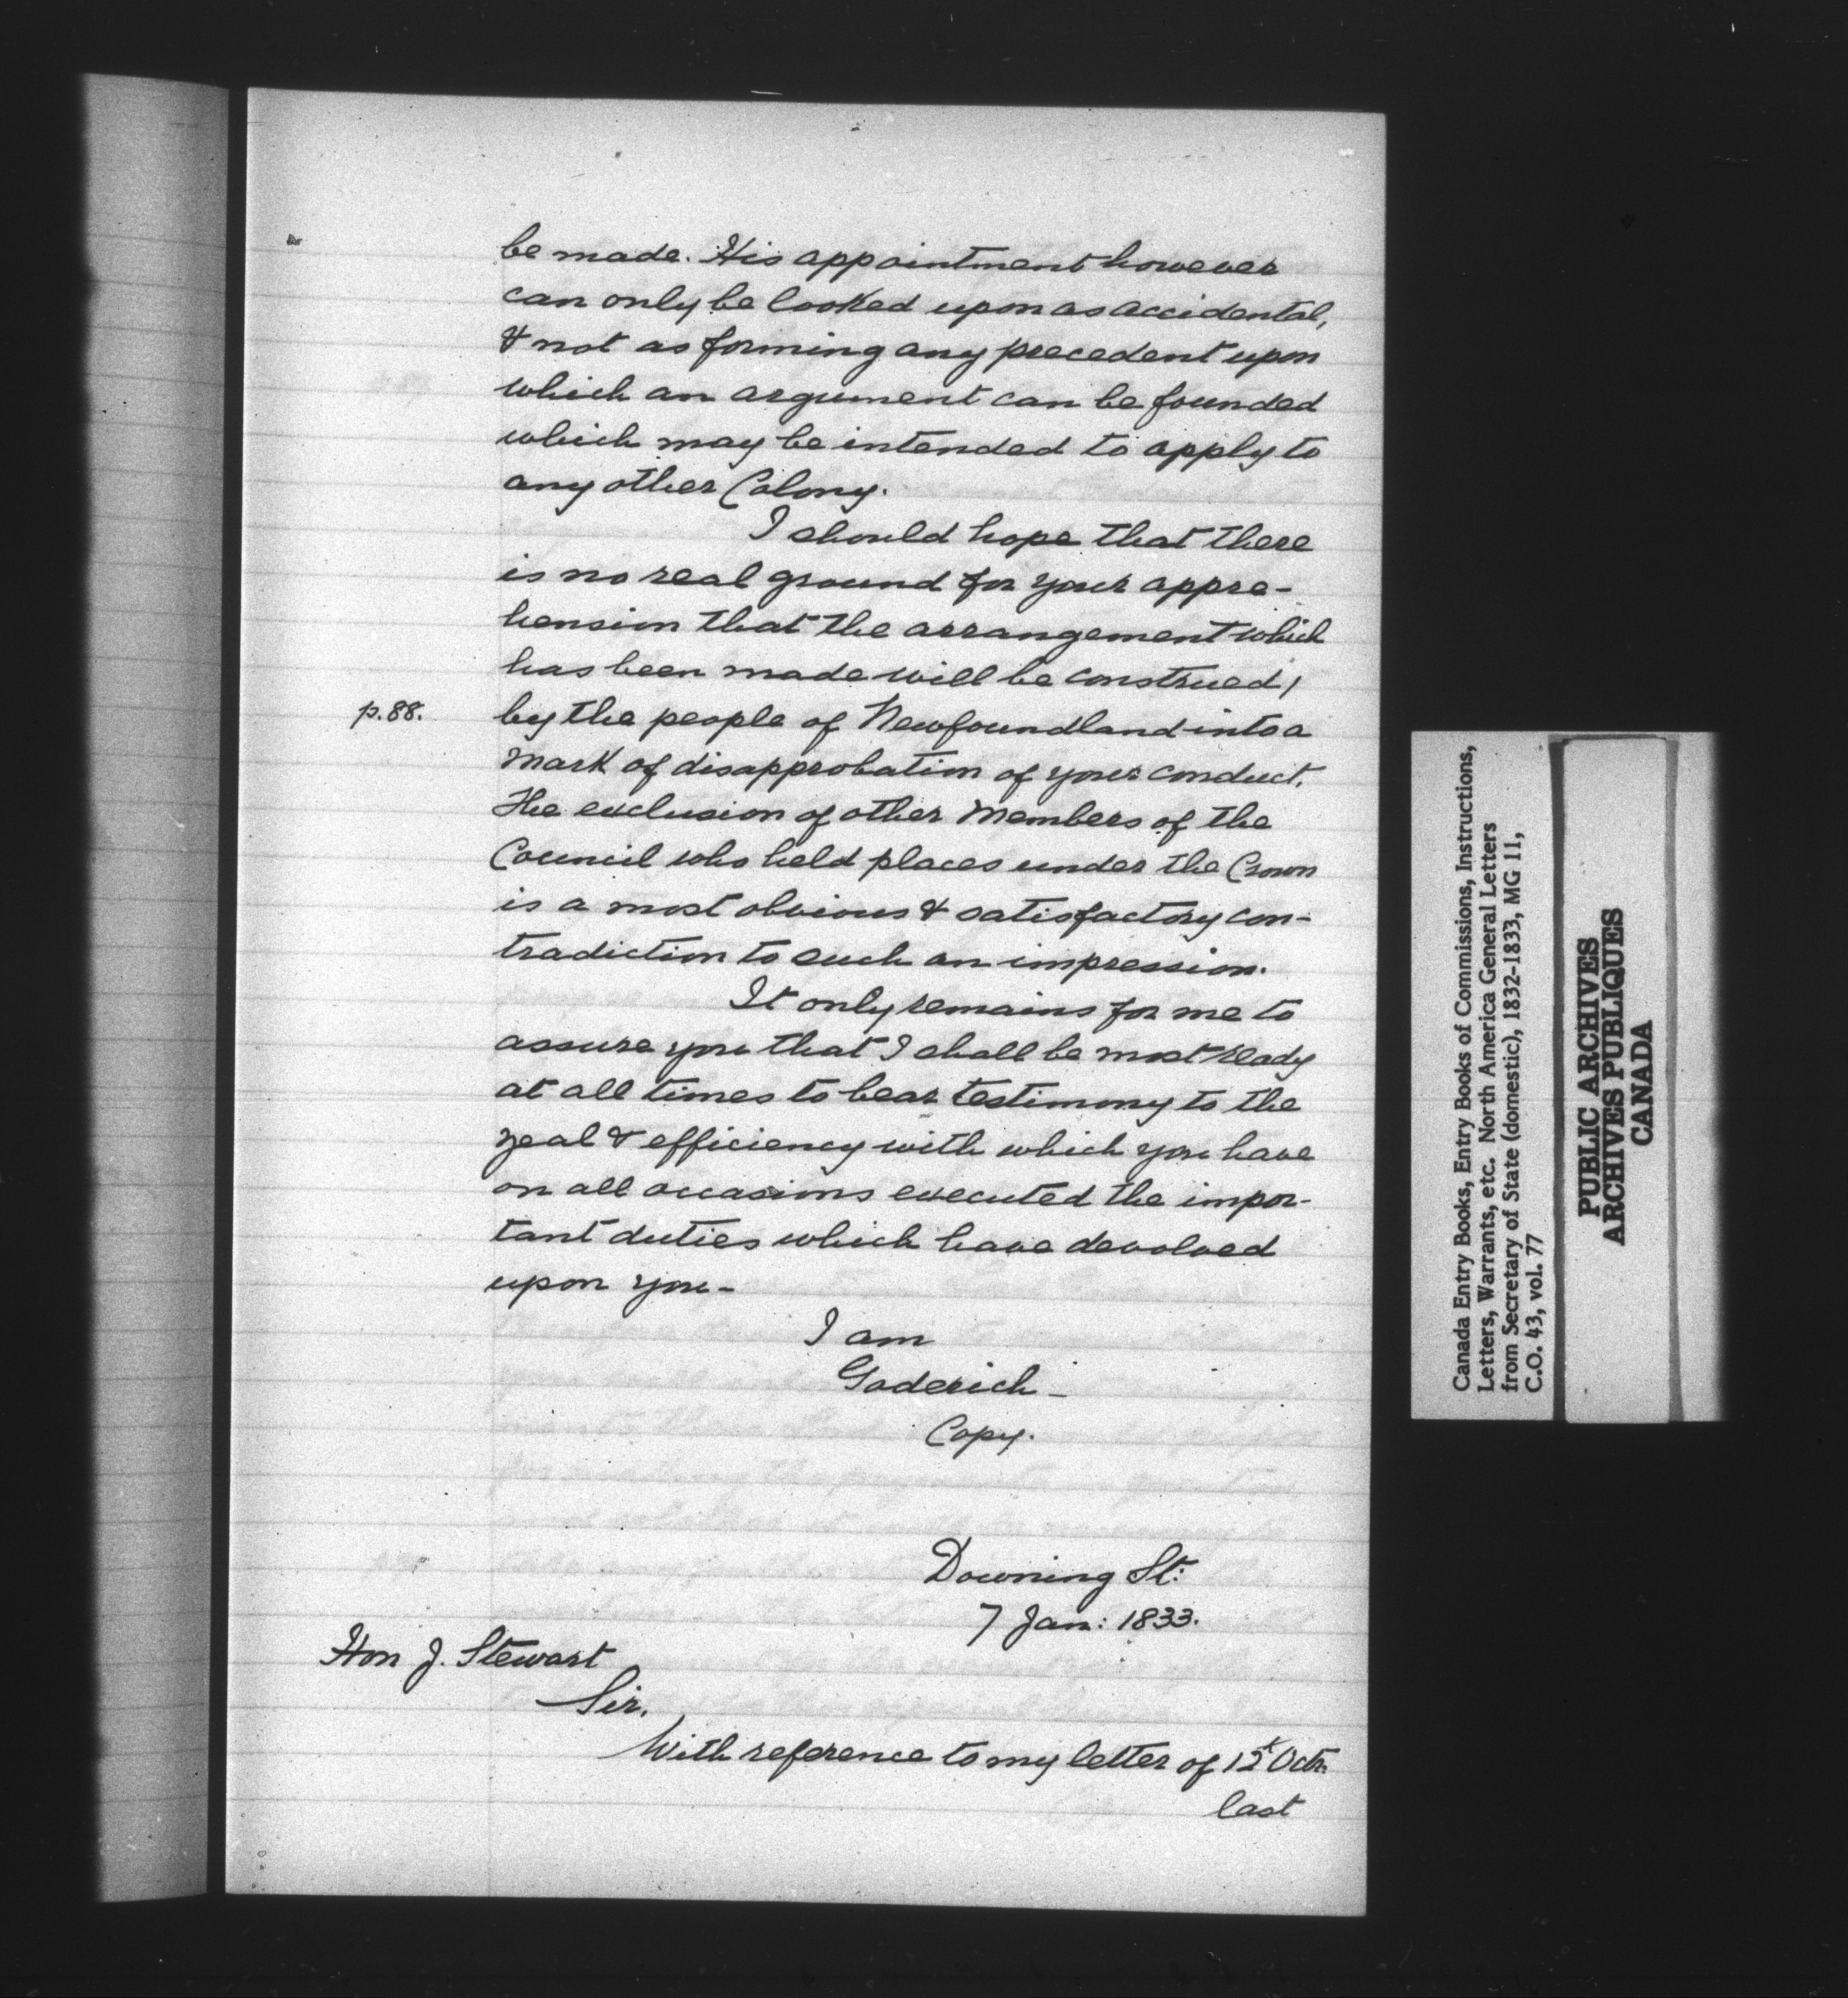 be made. His appointment however
can only be looked upon as accidental,
& not as forming any precedent upon
which an argument can be founded
which may be intended to apply to
any other Colony.
I should hope that there
is no real ground for your appre-
hension that the arrangement which
has been made will be construed /
p. 88. by the people of Newfoundland into a
mark of disapprobation of your conduct.
The exclusion of other Members of the
Council who held places under the Crown
is a most obvious & satisfactory con-
tradiction to such an impression.
It only remains for me to
assure you that I shall be most ready
at all times to bear testimony to the
zeal & efficiency with which you have
on all occasions executed the impor-
tant duties which have devolved
upon you -
I am
Goderich -
Copy.
Downing St:
7 Jan: 1833.
Hon J. Stewart
Sir,
With reference to my letter of 12t Octr.
last
Canada Entry Books, Entry Books of Commissions, Instructions,
Letters, Warrants, etc. North America General Letters
from Secretary of State (domestic), 1832-1833, MG 11,
C.O. 43, vol. 77
PUBLIC ARCHIVES
ARCHIVES PUBLIQUES
CANADA